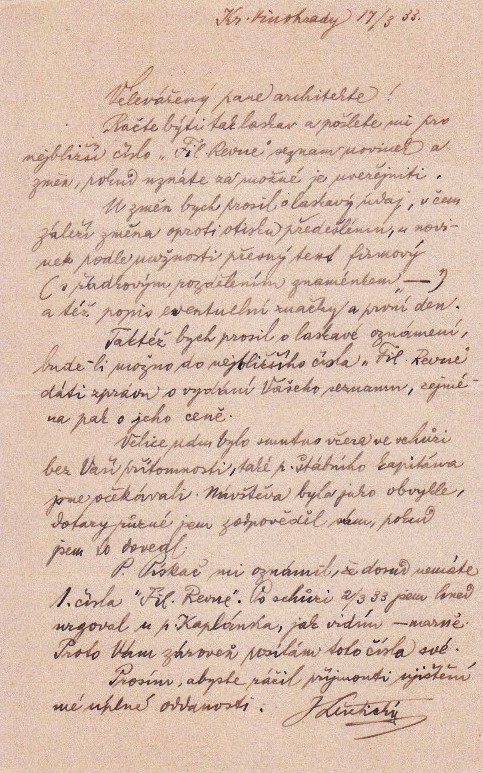 Kr. Vinohrady 17/3 33.
Velevážený pane architekte!
Račte býti tak laskav a pošlete mi pro
nejbližší číslo „Fil. Revue" seznam novinek a
změn, pokud uznáte za možné je uveřejniti.
U změn bych prosil o laskavý údaj, v čem
záleží změna oproti otisku předešlému, u novi-
nek podle možnosti přesný text firmový
(s řádkovým rozdělením znaménkem —")
a též popis eventuelní značky a první den.
Taktéž bych prosil o laskavé oznámení,
bude-li možno do nejbližšího čísla „Fil. Revue"
dáti zprávu o vydání Vašeho seznamu, zejmé-
na pak o jeho ceně.
Velice nám bylo smutno včera ve schůzi
bez Vaší přítomnosti, také p. štábního kapitána
jsme očekávali. Návštěva byla jako obvykle,
dotazy různé jsem zodpověděl sám, pokud
jsem to dovedl.
P. Piskač mi oznámil, že dosud nemáte
1. čísla "Fil. Revue". Po schůzi 2/3 33 jsem hned
urgoval u p. Kaplánka, jak vidím — marně.
Proto Vám zároveň posílám toto číslo své.
Prosím, abyste ráčil přijmouti ujištění
mé úplné oddanosti.